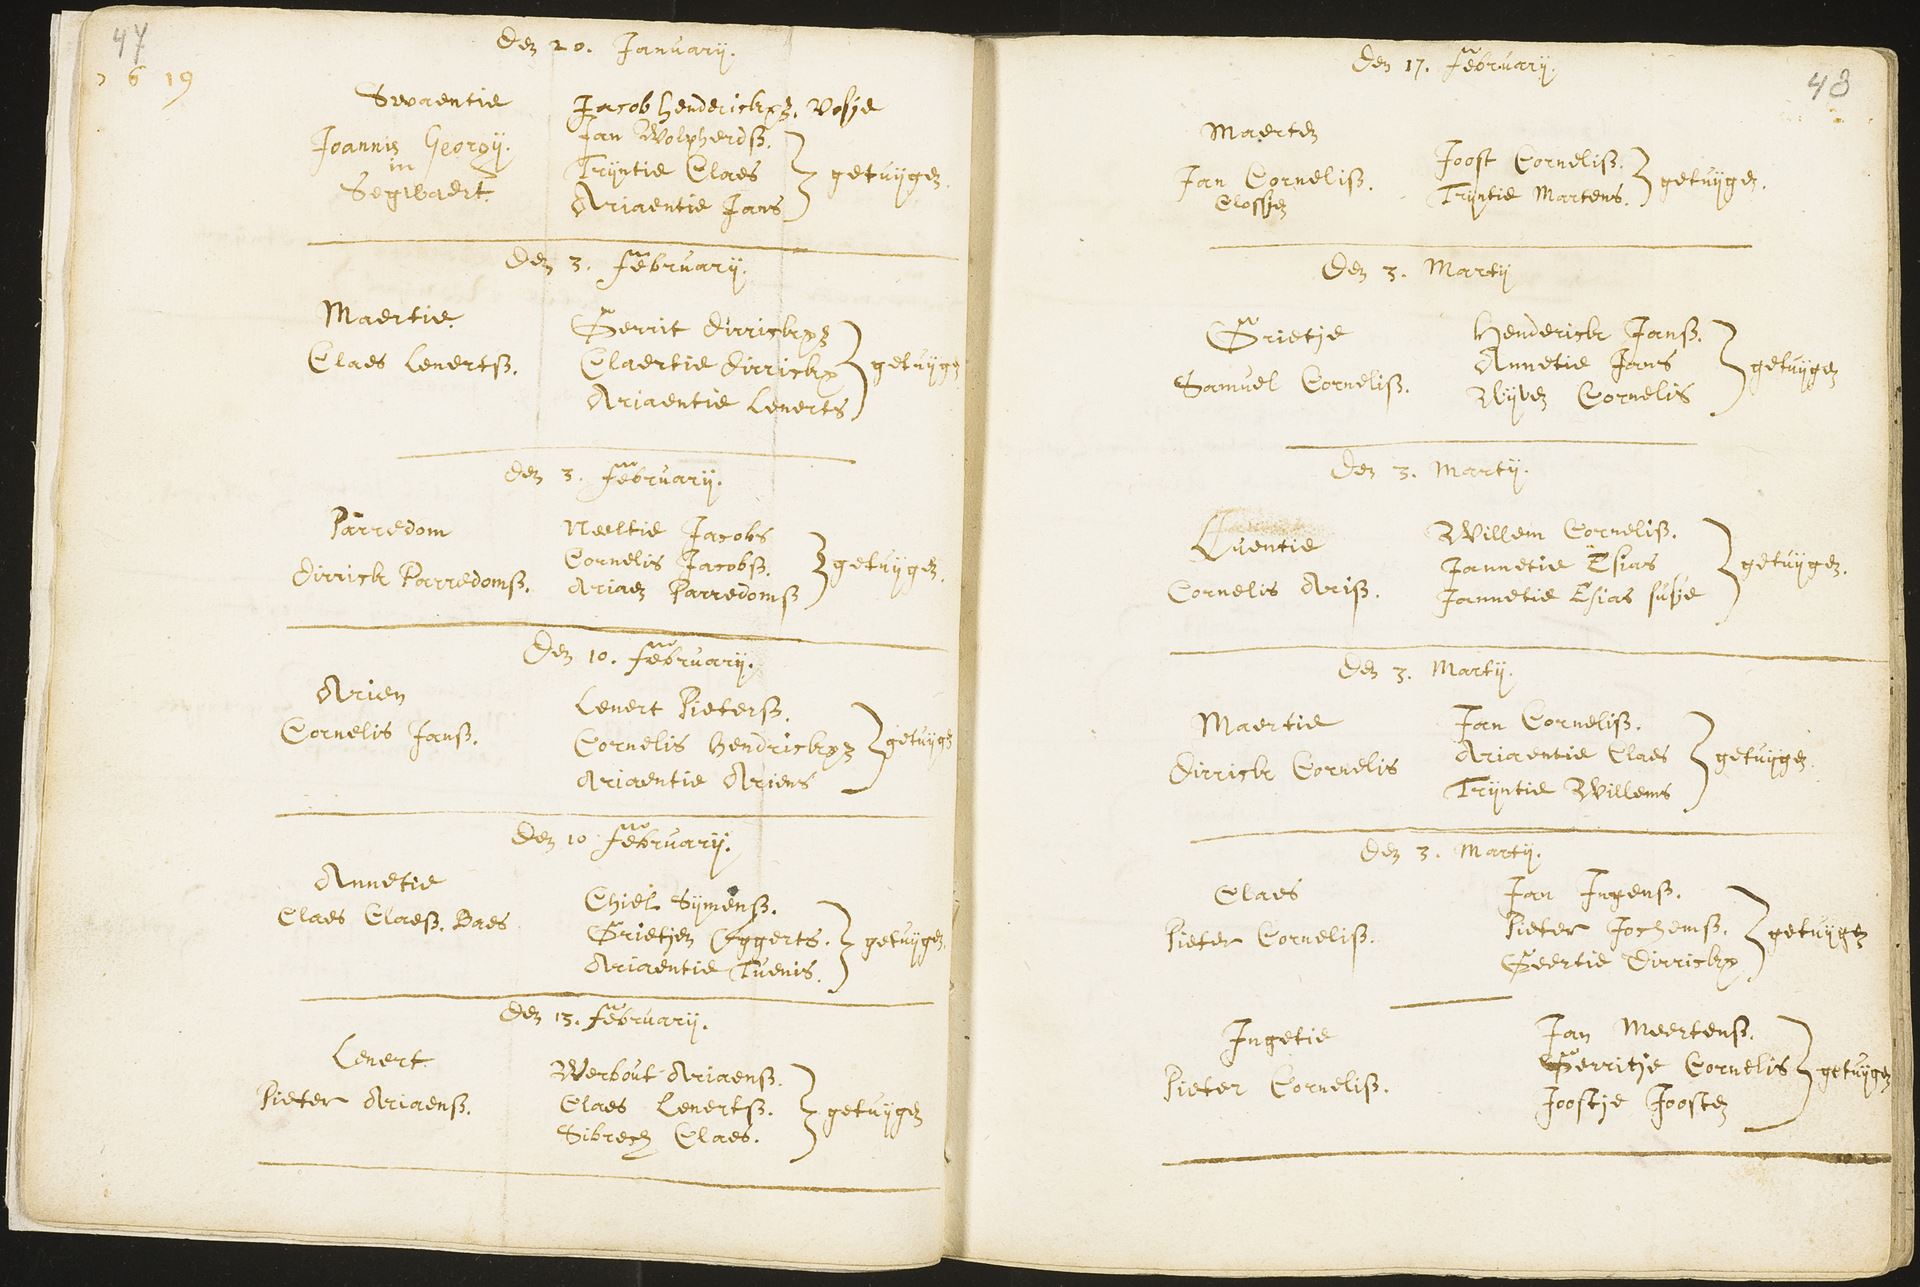 47
1619
Den 20. Januarij.
Swaentie
Joannis Georgij.
in
Segwaert.
Jacob Henderickxz. Vosje
Jan Wolpherdsz.
Trijntie Claes
Ariaentie Jans
getuijgen.
Den 3. februarij.
Maertie.
Claes Lenertsz.
Gerrit Dirrickxz
Claertie Dirrickx
Ariaentie Lenerts
getuijgen
Den 3. februarij.
Parredom
Dirrick Parredomsz.
Neeltie Jacobs
Cornelis Jacobsz.
Ariaen Parredomsz
getuijgen.
Den 10. februarij.
Arien
Cornelis Jansz.
Lenert Pietersz.
Cornelis Hendrickxz
Ariaentie Ariens
getuijgen
Den 10 februarij.
Annetie
Claes Claesz. Baes
Chiel Sijmensz.
Grietjen Eggerts.
Ariaentie Tuenis.
getuijgen.
Den 13. februarij.
Lenert.
Pieter Ariaensz.
Werbout Ariaensz.
Claes Lenertsz.
Sibrech Claes.
getuijgen
48
Den 17. februarij.
Maerten
Jan Cornelisz.
Joost Cornelisz.
Trijntie Martens.
getuijgen.
Den 3. Martij
Grietje
Samuel Cornelisz.
Henderick Jansz.
Annetie Jans
Wijven Cornelis
getuijgen
Den 3. Martij.
Luentie
Cornelis Arisz.
Willem Cornelisz.
Jannetie Esias
Jannetie Esias susje
getuijgen.
Den 3. Martij.
Maertie
Dirrick Cornelis
Jan Cornelisz.
Ariaentie Claes
Trijntie Willems
getuijgen.
Den 3. Martij.
Claes
Pieter Cornelisz.
Jan Ingensz.
Pieter Jochemsz.
Geertie Dirrickx
getuijgen
Ingetie
Pieter Cornelisz.
Jan Meertensz.
Gerritje Cornelis
Joostje Joosten
getuijgen